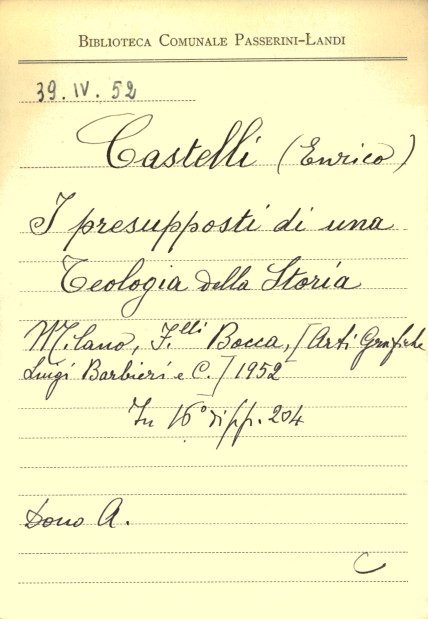 BIBLIOTECA COMUNALE PASSERINI-LANDI
39. IV. 52
Castelli (Enrico)
I presupposti di una
Teologia della Storia
Milano, F.lli Bocca, [Arti Grafiche
Luigi Barbieri e C.] 1952
In 16° di pp. 204
Dono A.
C